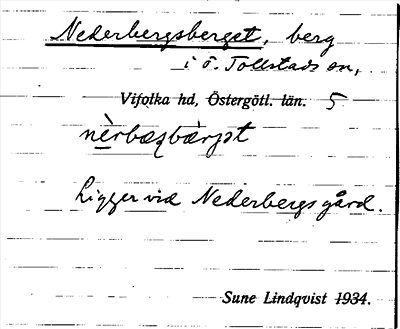 Nederbergsberget, berg
i ö. Tollstads sn,
Vifolka hd, Östergötl. län. 5
nèrbæʂbærjət
Ligger vid Nederbergs gård.
Sune Lindqvist 1934.